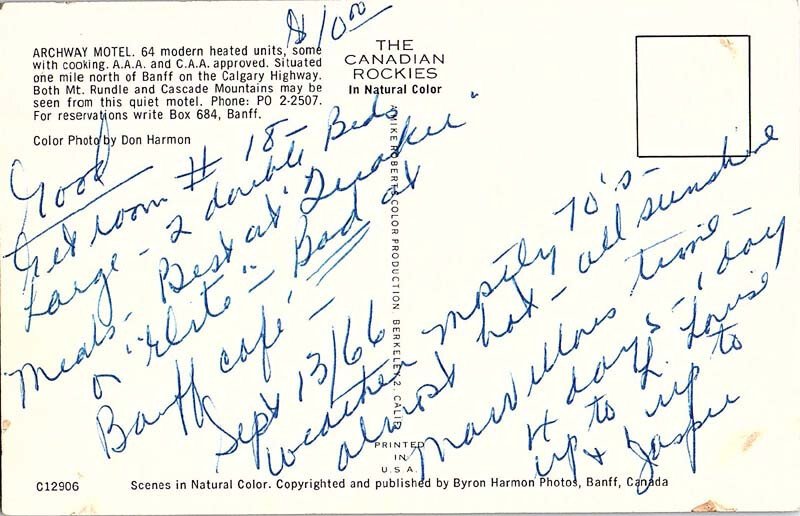 $10.00
ARCHWAY MOTEL. 64 modern heated units, some
with cooking. A.A.A. and C.A.A. approved. Situated
one mile north of Banff on the Calgary Highway.
Both Mt. Rundle and Cascade Mountains may be
seen from this quiet motel. Phone: PO 2-2507.
For reservations write Box 684, Banff.
Color Photo by Don Harmon
THE
CANADIAN
ROCKIES
In Natural Color
A MIKE ROBERTS COLOR PRODUCTION BERKELEY 2, CALIF.
Good
Get room # 18 -
Large - 2 double Beds
Meals - Best at
or "Elite" - Bad at
Banff café -
Sept 13/66
Weather mostly 70's -
almost hot - all sunshine
Marvellous time -
4 days - 1 day
up to L. Louise
+ 1 up to
Jasper
PRINTED
IN
U.S.A.
C12906
Scenes in Natural Color. Copyrighted and published by Byron Harmon Photos, Banff, Canada